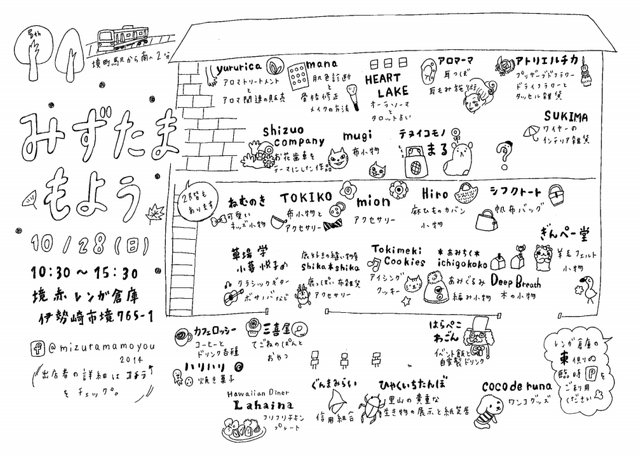 5th
境町駅から南へ2分
みずたま
もよう
10/28(日)
10:30~15:30
境赤レンガ倉庫
伊勢崎市境765-1
@mizuramamoyou
2014
出店者の詳細は
をチェック。
yururica
アロマトリートメント
と
アロマ関連の販売
mana
肌色診断
と
骨格修正
メイクの方法
HEART
LAKE
オーラソーマ
タロット占い
アロマーマ
耳つぼ
耳もみ施術
アトリエルチカ
プリザーブドフラワー
ドライフラワーと
タッセル雑貨
SUKIMA
ワイヤーの
インテリア雑貨
Shizuo
company
お花畑を
テーマにした作品
mugi
布小物
テヌイコモノ
まる
?
2階も
あります
ねむのき
可愛い
キッズ小物
TOKIKO
布小物と
アクセサリー
mion
アクセサリー
Hiro
麻ひものカバン
小物
シフクトート
帆布バッグ
ぎんぺー堂
羊毛フェルト
小物
草場 学
小暮悦子
クラシックギター
ボサノバなど
shika*shika
アクセサリー
Tokimeki
Cookies
アイシング
クッキー
*あみちく*
ichigokoko
あみぐるみ
編み小物
Deep Breath
木の小物
カフェロッシー
コーヒーと
ドリンク各種
三喜屋
てごねのぱんと
おやつ
ハリハリ
焼き菓子
Hawaiian Diner
Lahaina
フリフリチキン
プレート
はらぺこ
わごん
イベント飯と
自家製ドリンク
ぐんまみらい
信用組合
ひゃくいちたんぼ
里山の貴重な
生き物の展示と紙芝居
coco de runa
ワンコグッズ
レンガ倉庫の
東側の
臨時P を
ご利用
ください